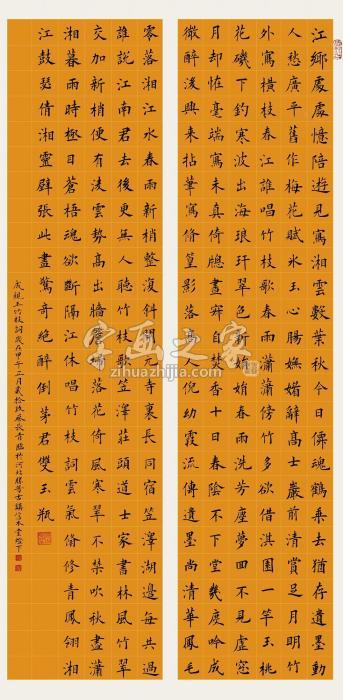 江鄉處處憶陪遊見寫湘雲數葉秋今日儒魂鶴乘去猶存遺墨動
人愁廣平舊作梅花賦水玉心腸嫵媚辭高士巖前清賞足月明竹
外寫橫枝春江誰唱竹枝歌翠雨瀟瀟傍石坡欲借淇園一竿玉桃
花磯下釣寒波出海琅玕翠色新娟娟春雨洗芳塵夢回不見虛窓
月却恠毫端寫未真倚牆晝寂盡焚香十日春陰不下堂幾度吟成
微醉後興來拈筆寫脩篁影落幻霞流傳遺墨尚清華鳳毛
零落湘江水春雨新梢整復斜開元寺裏長同宿笠澤湖邊每共過
誰說江南君去後更無人聽竹枝歌笠澤莊頭道士家書林風竹翠
交加新梢便有淩雲勢高出牆落花倚風寒翠不禁吹秋盡瀟
湘暮雨時極目蒼梧魂欲斷隔江休唱竹枝詞北雲氣脩修青鳳翎湘
江鼓瑟倩湘靈壁張此畫驚奇絕醉倒茅君雙玉瓶
成親王竹枝詞歲在甲午二月長青臨於河北勝芳古鎮
字画之家
zihuazhijia.com